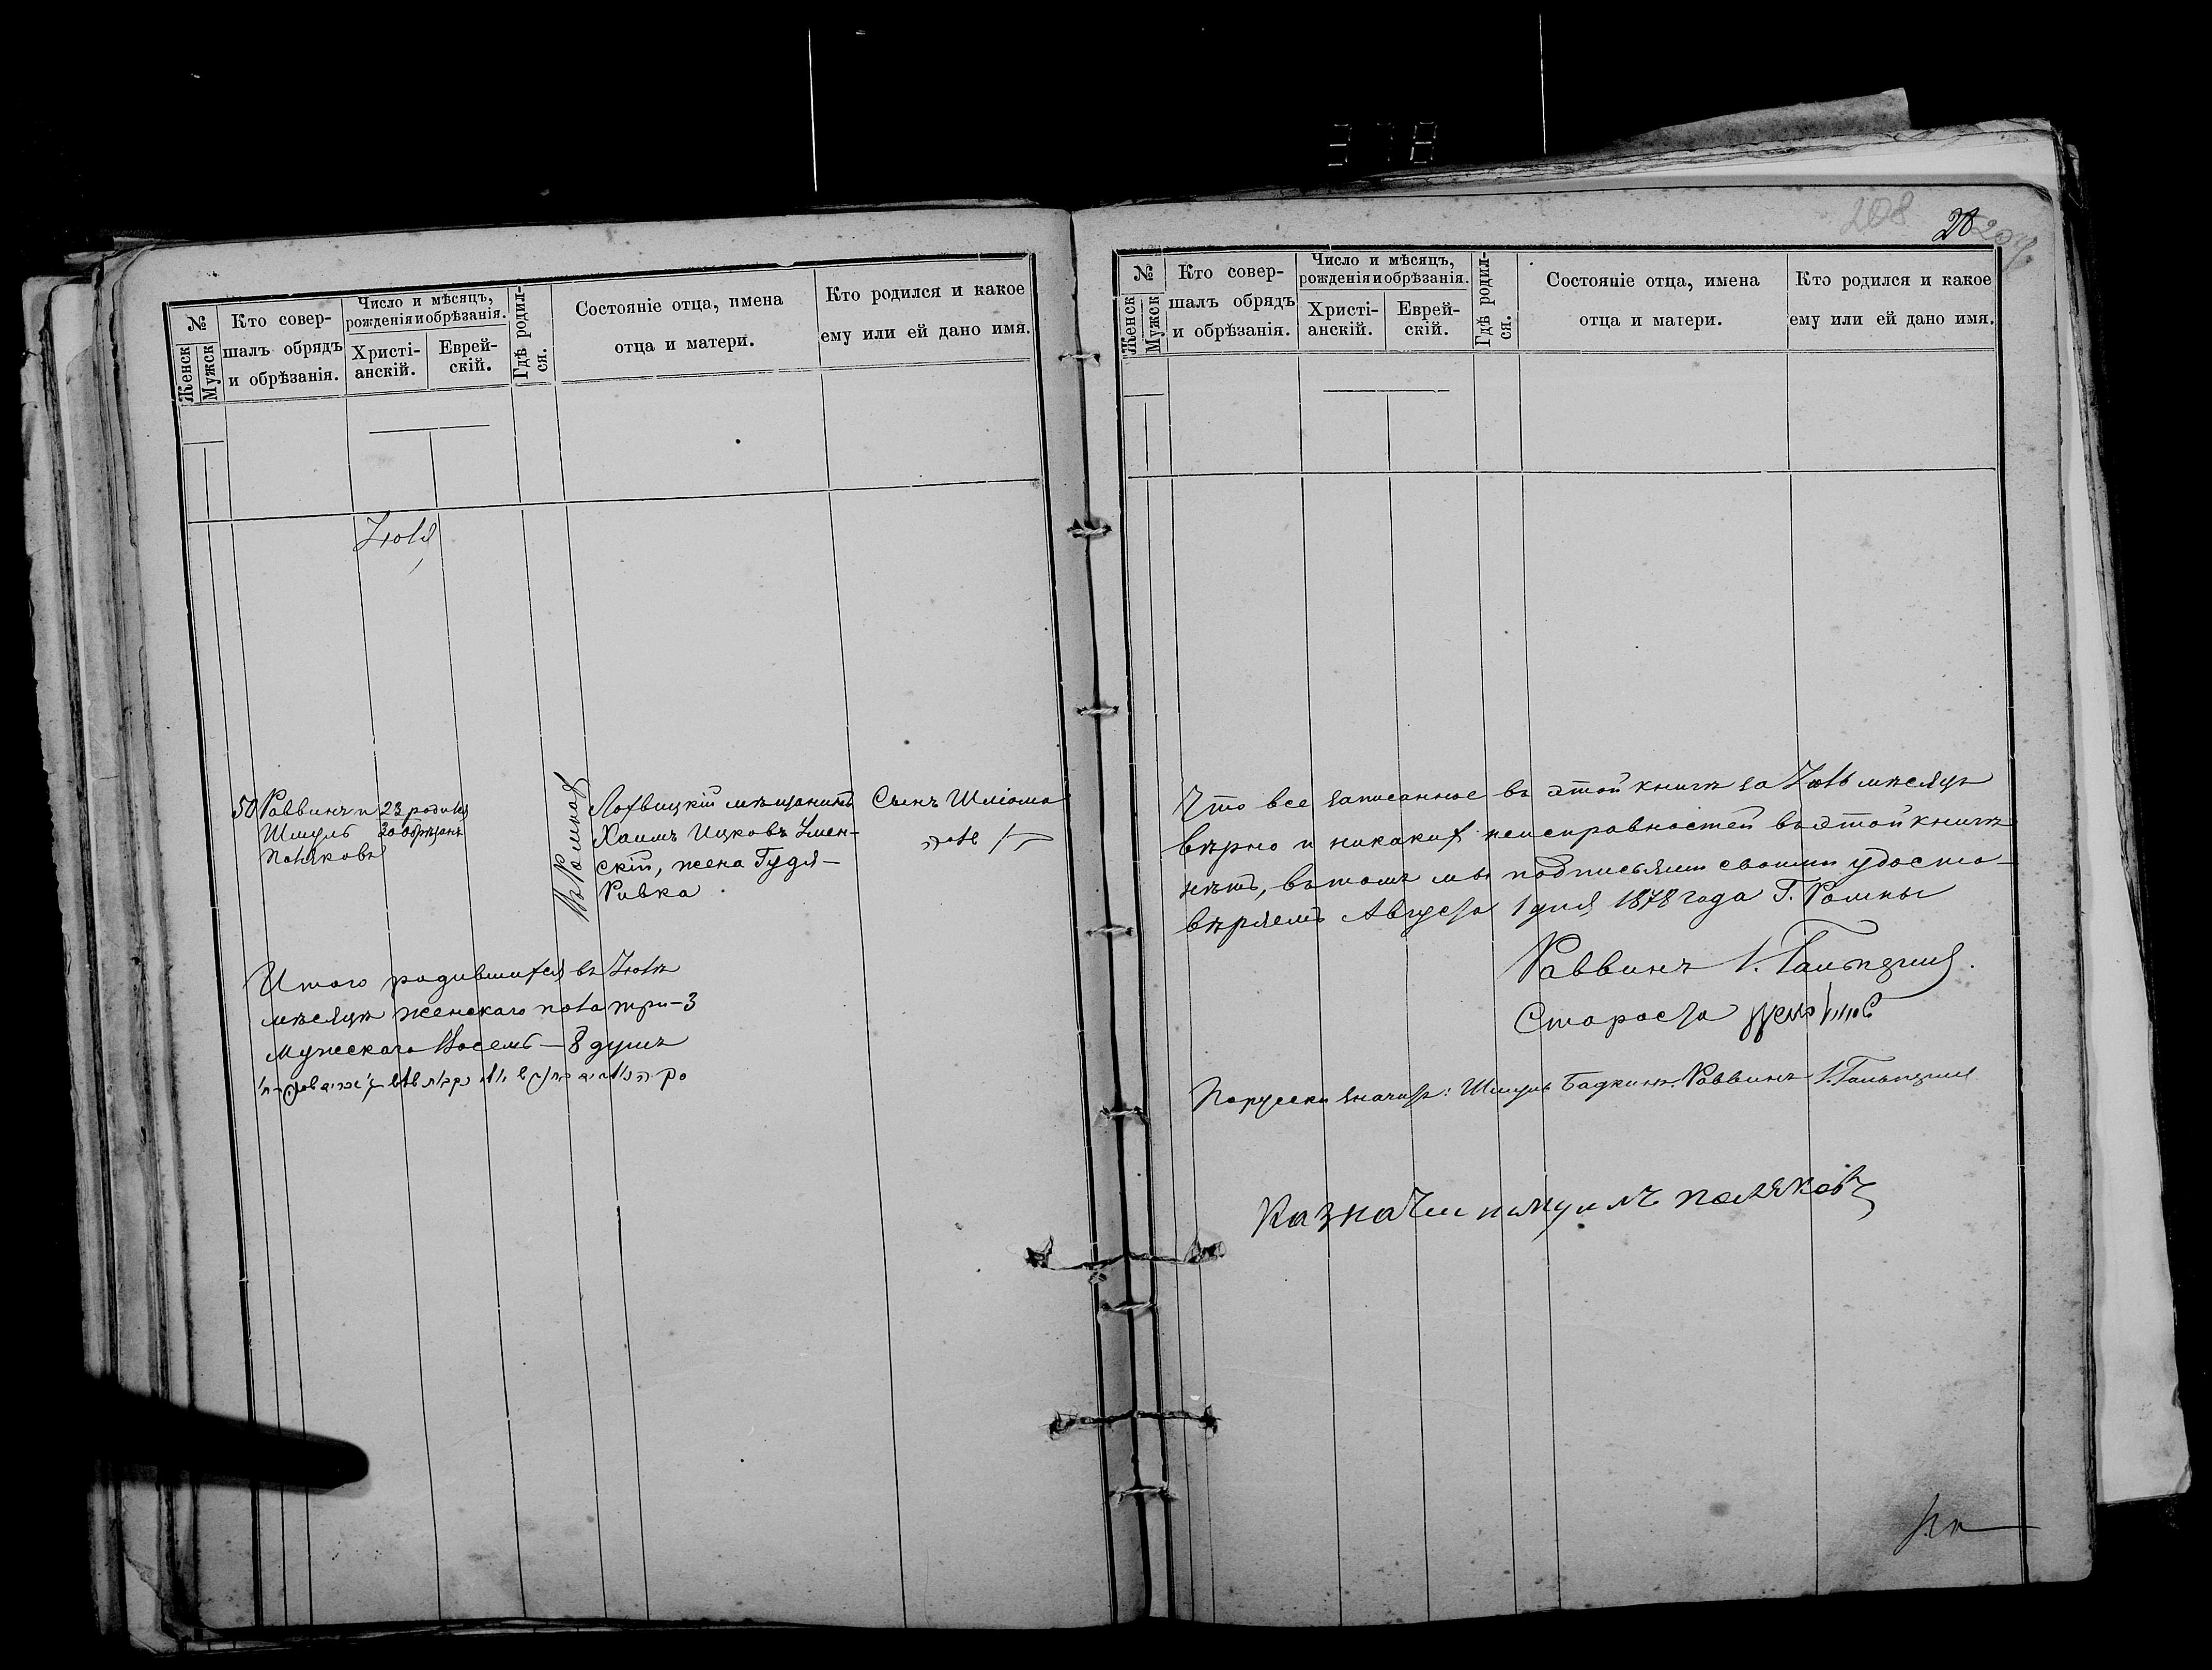 378
208
28
№
Женск
Мужск
Кто совер-
шалъ обрядъ
и обрѣзанія.
Число и мѣсяцъ,
рожденія и обрѣзанія.
Христі-
анскій.
Еврей-
скій.
Гдѣ родил-
ся.
Состояніе отца, имена
отца и матери.
Кто родился и какое
ему или ей дано имя.
Іюля
50 Раввинъ и
Шмуль
Поляковъ
23 родился
30 обрѣзанъ
Въ Ромнахъ
Лохвицкій мѣщанинъ
Хаимъ Ицковъ
скій, жена Гудя-
Ривка
Сынъ Шліома
Итого родившихся въ Іюлѣ
мѣсяцѣ женскаго пола три-3
Мужскаго Восемь-8 душъ
№
Женск
Мужск
Кто совер-
шалъ обрядъ
и обрѣзанія.
Число и мѣсяцъ,
рожденія и обрѣзанія.
Христі-
анскій.
Еврей-
скій.
Гдѣ родил-
ся.
Состояніе отца, имена
отца и матери.
Кто родился и какое
ему или ей дано имя.
Что все записанное въ этой книгѣ за Іюль мѣсяцъ
вѣрно и никакихъ неисправностей въ этой книгѣ
нѣтъ, въ томъ мы подписями своими удосто-
вѣряемъ Августа 1 дня 1878 года Г. Ромны
Раввинъ І. Гальперинъ
Староста
По русски значитъ: Шмуль Раввинъ І. Гальперинъ
Казначи шмуилъ поляковъ